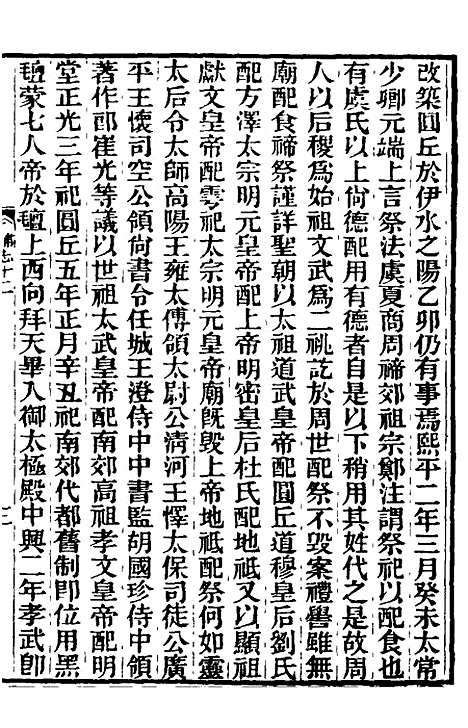 改築圓丘於伊水之陽乙卯仍有事焉熙平二年三月癸未太常
少卿元端上言祭法虞夏商周禘郊祖宗鄭注謂祭祀以配食也
有虞氏以上尙德配用有德者自是以下稍用其姓代之是故周
人以后稷爲始祖文武爲二祧訖於周世配祭不毀案禮嚳雖無
廟配食禘祭謹詳聖朝以太祖道武皇帝配圓丘道穆皇后劉氏
配方澤太宗明元皇帝配上帝明密皇后杜氏配地祇又以顯祖
獻文皇帝配雩祀太宗明元皇帝廟旣毀上帝地祇配祭何如靈
太后令太師高陽王雍太傅領太尉公清河王懌太保司徒公廣
平王懷司空公領尙書令任城王澄侍中中書監胡國珍侍中領
著作郎崔光等議以世祖太武皇帝配南郊高祖孝文皇帝配明
堂正光三年祀圓丘五年正月辛丑祀南郊代都舊制卽位用黑
氊蒙七人帝於氊上西向拜天畢入御太極殿中興二年孝武卽
志十二